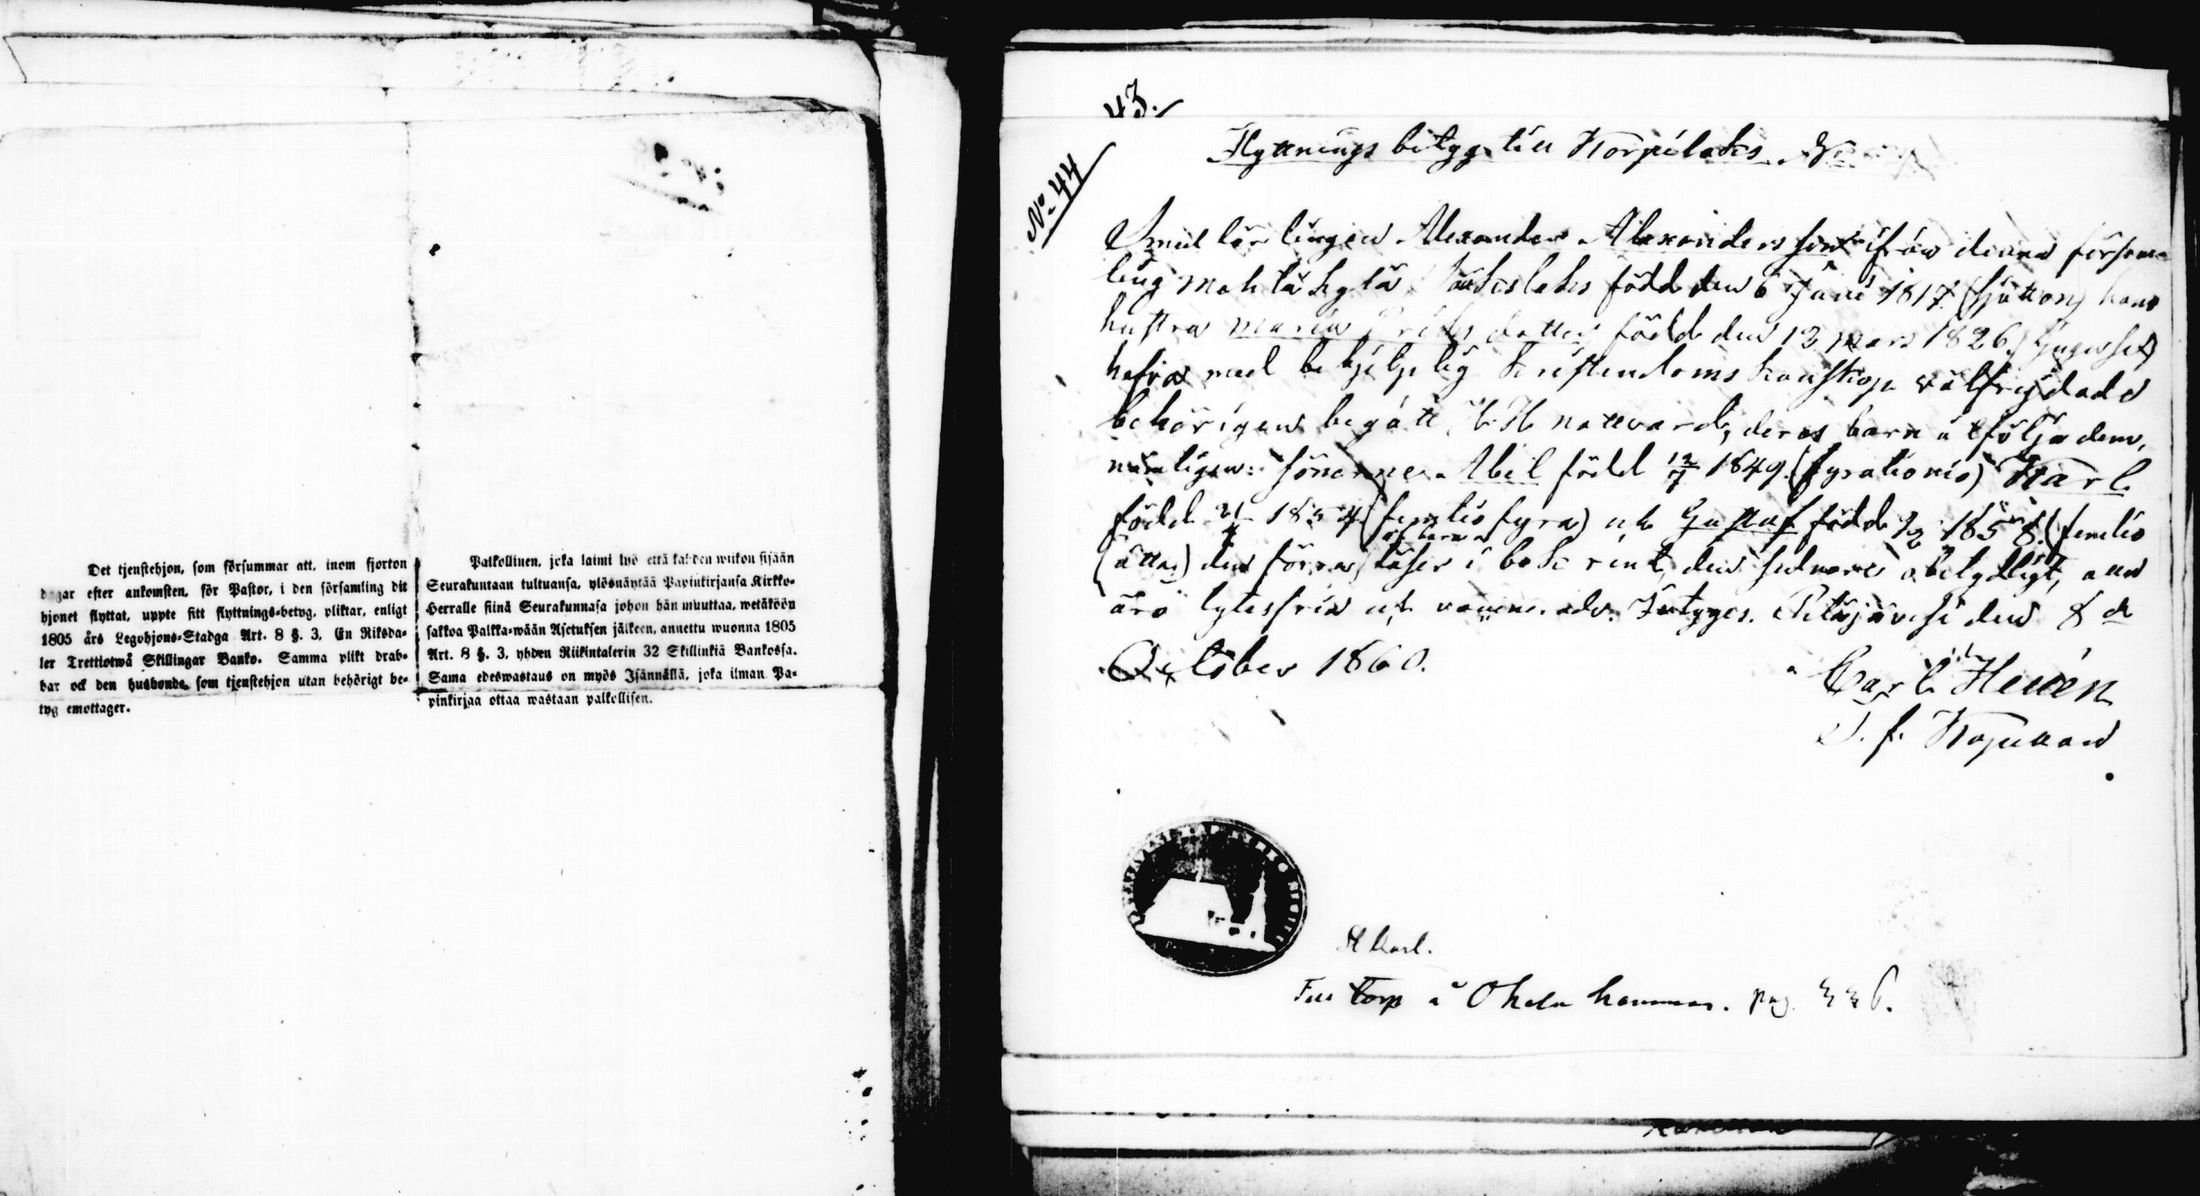 Det tjenstehjon, som försummar att, inom fjorton
dagar efter ankomsten, för Pastor, i den församling dit
hjonet flyttat, uppte sitt flyttnings-betyg, pliktar, enligt
1805 års Legohjons-Stadga Art. 8 §. 3, En Riksda-
ler Trettiotwå Skillingar Banko. Samma plikt drab-
bar ock den husbonde, som tjenstehjon utan behörigt be-
tyg emottager.
Palkollinen, joka laimi lyö että kahden wiikon sisään
Seurakuntaan tultuansa, ylösnäytää Papinkirjansa Kirkko-
Herralle siinä Seurakunnasa johon hän muuttaa, wetäköön
sakkoa Palkka-wään Asetuksen jälkeen, annettu wuonna 1805
Art. 8 §. 3, yhden Riikintalerin 32 Skillinkiä Bankossa.
Sama edeswastaus on myös Isännällä, joka ilman Pa-
pinkirjaa ottaa wastaan palkollisen.
43.
No 44
Flyttnings betyg till Korpilaks
Smed lärlingen Alexander Alexandersson ifrån denna försam
ling född den 6 Juni 1817 (sjutton) hans
hustru Maria Eriks dotter född den 12 Mars 1826
hafva med behjelplig kristendoms kunskap välfrejdade
behörigen begått H. H. nattvard, deras barn åtfölja dem,
nemligen: sönerne Abel född 12/7 1849. (fyrationio) Karl
född 21 1854 (femtio fyra) och Gustaf född 1858. (femtio
(åtta) den förra läser i bok rent, den sednare obetydligt, alla
äro lytesfria och vaccinerade. Intygges. Petäjävesi den 8 de
October 1860.
Carl Helén
S. f. Kapellan
Till Torp å Ohela hemman. pag. 336.